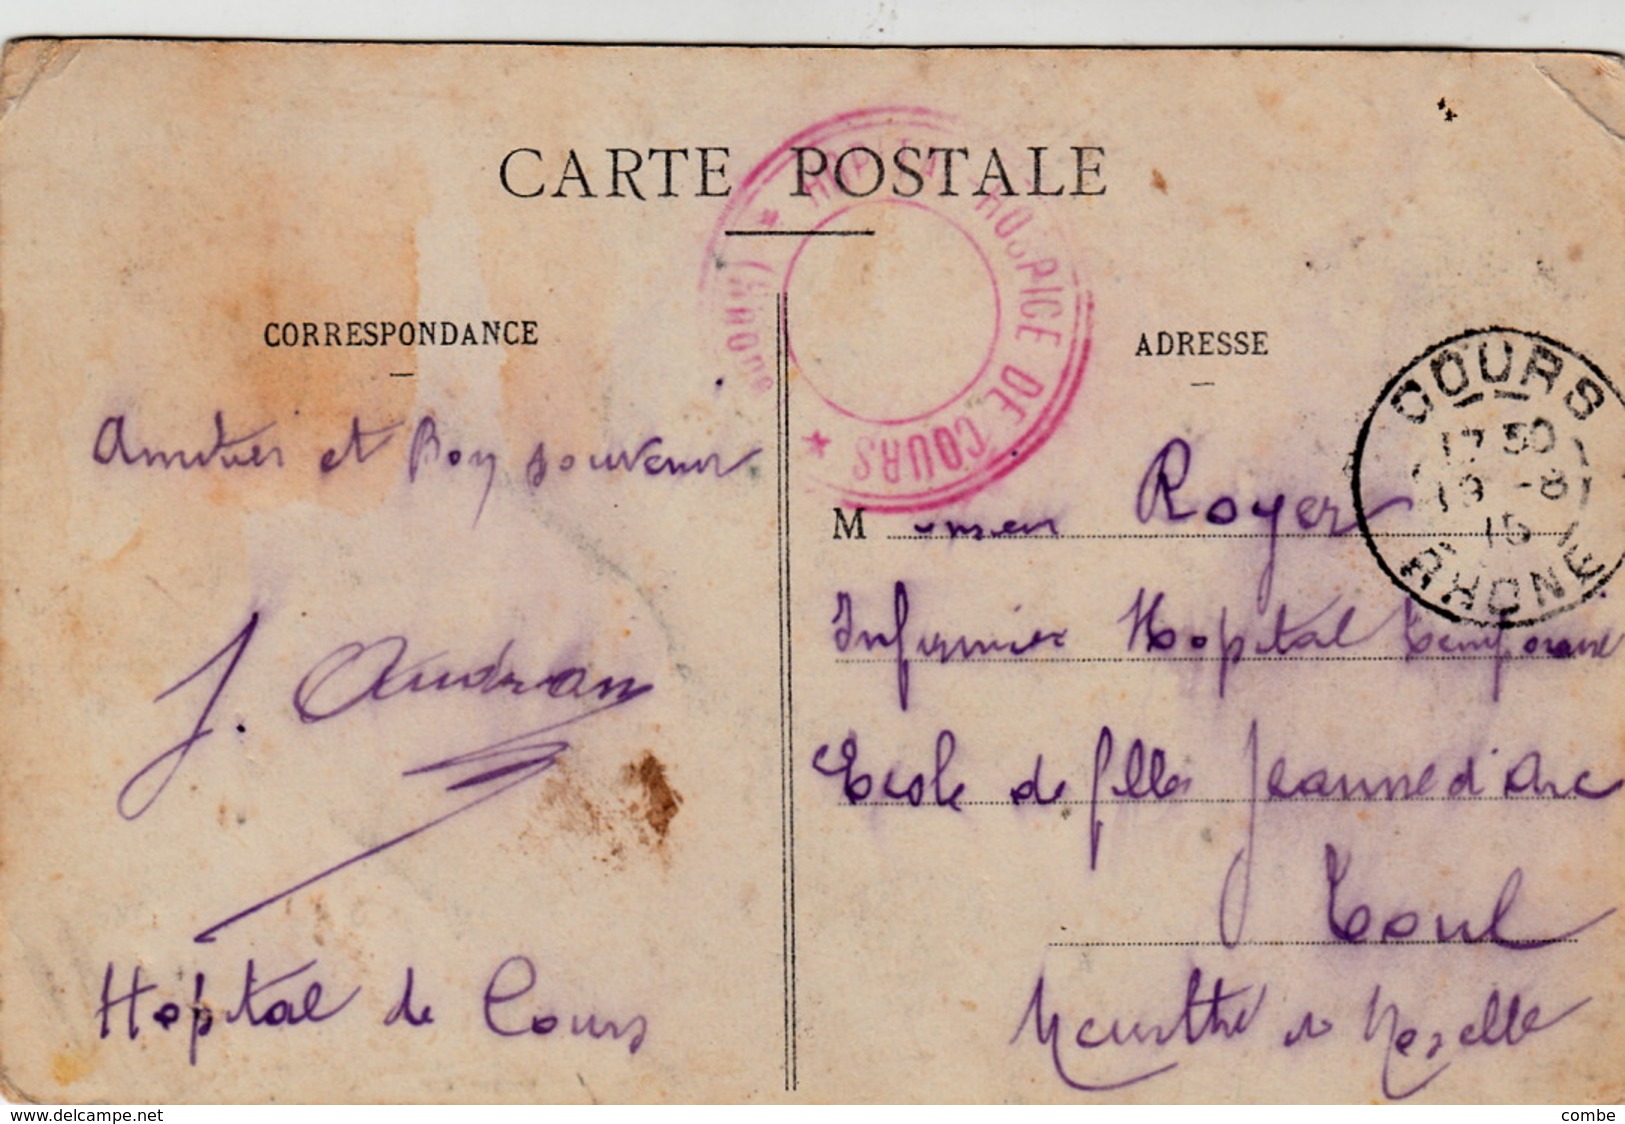 CARTE POSTALE
HOPITAL HOSPICE DE COURS
(Rhône)
CORRESPONDANCE
Amitiés et Bon souvenir
J. Audran
Hopital de Cours
ADRESSE
COURS
17 30
19 -8
15
RHONE
Monsieur Royer
Infirmier Hopital temporaire
Ecole de filles Jeanne d'Arc
Toul
Meurthe et Moselle
www.delcampe.net
combe